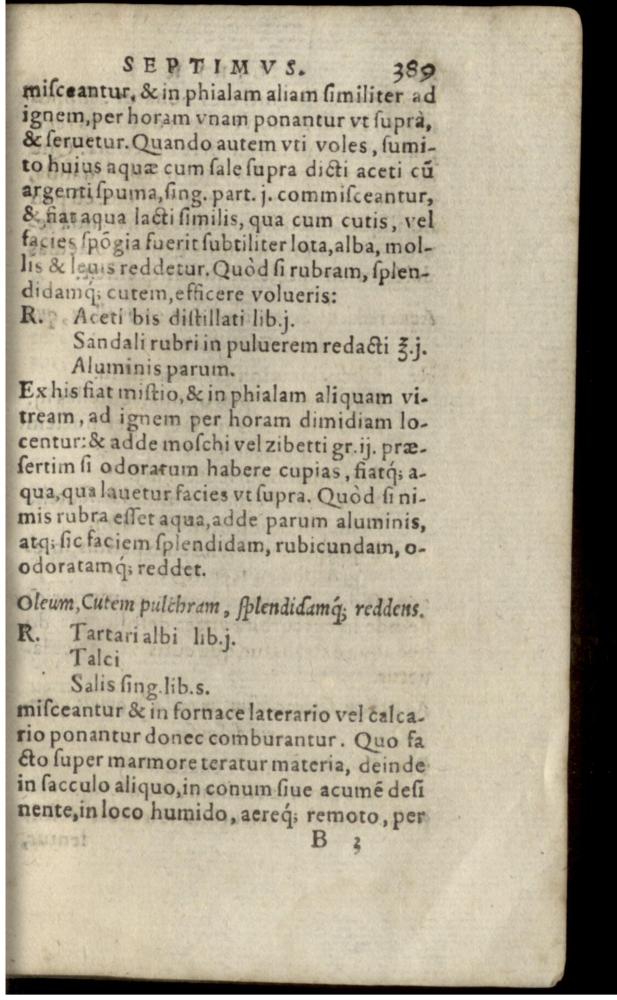 SEPTIMVS. 389
miſceantur, & in phialam aliam ſimiliter ad
ignem, per horam vnam ponantur vt ſuprà,
& ſeruetur. Quando autem vti voles, ſumi-
to huius aquæ cum ſale ſupra dicti aceti cū
argenti ſpuma, ſing. part. j. commiſceantur,
& fiat aqua lacti ſimilis, qua cum cutis, vel
facies ſpōgia fuerit ſubtiliter lota, alba, mol-
lis & leuis reddetur. Quòd ſi rubram, ſplen-
didamq́; cutem, efficere volueris:
R. Aceti bis diſtillati lib. j.
Sandali rubri in puluerem redacti ℥. j.
Aluminis parum.
Ex his fiat miſtio, & in phialam aliquam vi-
tream, ad ignem per horam dimidiam lo-
centur: & adde moſchi vel zibetti gr. ij. præ-
ſertim ſi odoratum habere cupias, fiatq́; a-
qua, qua lauetur facies vt ſupra. Quòd ſi ni-
mis rubra eſſet aqua, adde parum aluminis,
atq; ſic faciem ſplendidam, rubicundam, o-
odoratamq́; reddet.
Oleum, Cutem pulchram, ſplendidamq́; reddens.
R. Tartari albi lib. j.
Talci
Salis ſing. lib. s.
miſceantur & in fornace laterario vel calca-
rio ponantur donec comburantur. Quo fa
cto ſuper marmore teratur materia, deinde
in ſacculo aliquo, in conum ſiue acumē deſi
nente, in loco humido, aereq́; remoto, per
B 3